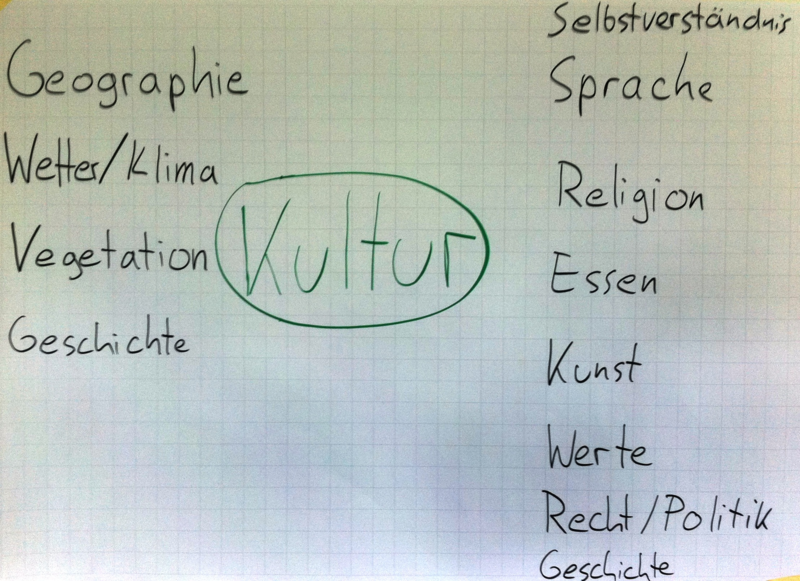 Geographie
Wetter/Klima
Vegetation
Geschichte
Kultur
Selbstverständnis
Sprache
Religion
Essen
Kunst
Werte
Recht/Politik
Geschichte